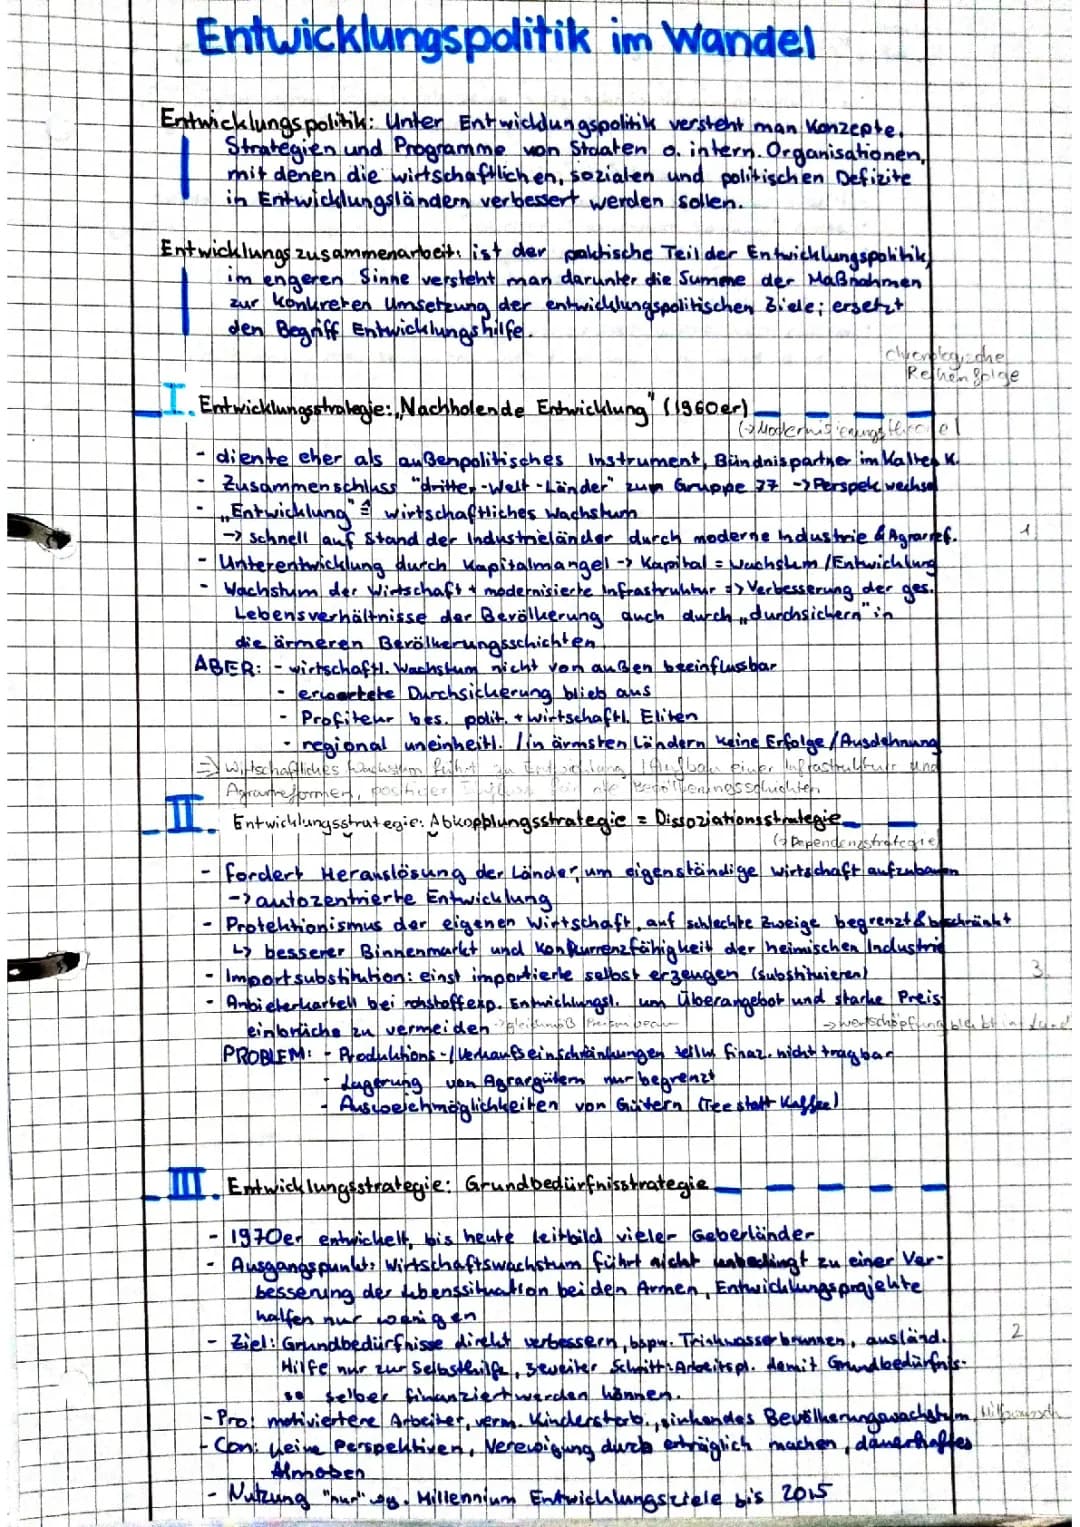 Entwicklungspolitik im Wandel
Entwicklungspolitik: Unter Entwicklungspolitik versteht man Konzepte,
Strategien und Programme von Staaten o. intern. Organisationen,
mit denen die wirtschaftlichen, sozialen und politischen Defizite
in Entwicklungsländern verbessert werden sollen.
Entwicklungszusammenarbeit: ist der paktische Teil der Entwicklungspolitik,
im engeren Sinne versteht man darunter die Summe der Maßnahmen
zur konkreten Umsetzung der entwicklungspolitischen Ziele; ersetzt
den Begriff Entwicklungshilfe.
chronologische
Reihenfolge
I. Entwicklungsstrategie: „Nachholende Entwicklung" (1960er)
(→Modernisierungstheorie)
- diente eher als außenpolitisches Instrument, Bündnispartner im Kalten K.
- Zusammenschluss "dritter-Welt-Länder" zum Gruppe 77 -> Perspekwechsel
- „Entwicklung" ≙ wirtschaftliches Wachstum
-> schnell auf Stand der Industrieländer durch moderne Industrie & Agrarref.
1
- Unterentwicklung durch Kapitalmangel -> Kapital = Wachstum/Entwicklung
- Wachstum der Wirtschaft + modernisierte Infrastruktur => Verbesserung der ges.
Lebensverhältnisse der Bevölkerung auch durch „durchsichern" in
die ärmeren Bevölkerungsschichten
ABER: - wirtschaftl. Wachstum nicht von außen beeinflussbar
- erwartete Durchsickerung blieb aus
- Profiteur bes. polit. + wirtschaftl. Eliten
- regional uneinheitl. / in ärmsten Ländern keine Erfolge/Ausdehnung
=> Wirtschaftliches Wachstum führt zu Entwicklung, Aufbau einer Infrastruktur und
Agrarreformen, positiver Einfluss für alle Bevölkerungsschichten
II. Entwicklungsstrategie: Abkopplungsstrategie = Dissoziationsstrategie
(→Dependenzstrategie)
- fordert Herauslösung der Länder, um eigenständige wirtschaft aufzubauen
-> autozentrierte Entwicklung
- Protektionismus der eigenen Wirtschaft, auf schlechte Zweige begrenzt & beschränkt
↳ besserer Binnenmarkt und Konkurrenzfähigkeit der heimischen Industrie
- Importsubstitution: einst importierte selbst erzeugen (substituieren)
3.
- Anbieterkartell bei rohstoffexp. Entwicklungsl. um Überangebot und starke Preis-
einbrüche zu vermeiden
→ wertschöpfung bleibt im Land
PROBLEM: - Produktions-/Verkaufseinschränkungen teilw. finaz. nicht tragbar
- Lagerung von Agrargütern nur begrenzt
- Ausweichmöglichkeiten von Gütern (Tee statt Kaffee)
III. Entwicklungsstrategie: Grundbedürfnisstrategie
- 1970er entwickelt, bis heute Leitbild vieler Geberländer
- Ausgangspunkt: Wirtschaftswachstum führt nicht unbedingt zu einer Ver-
besserung der Lebenssituation bei den Armen, Entwicklungsprojekte
halfen nur wenigen
- Ziel: Grundbedürfnisse direkt verbessern, bspw. Trinkwasserbrunnen, ausländ.
2
Hilfe nur zur Selbsthilfe, zweiter Schritt: Arbeitspl. damit Grundbedürfnis-
se selber finanziert werden können.
- Pro: motiviertere Arbeiter, verm. Kindersterb., sinkendes Bevölkerungswachstum,
- Con: keine Perspektiven, Verewigung durch erträglich machen, dauerhaftes
Almosen
- Nutzung "nur" wg. Millennium Entwicklungsziele bis 2015